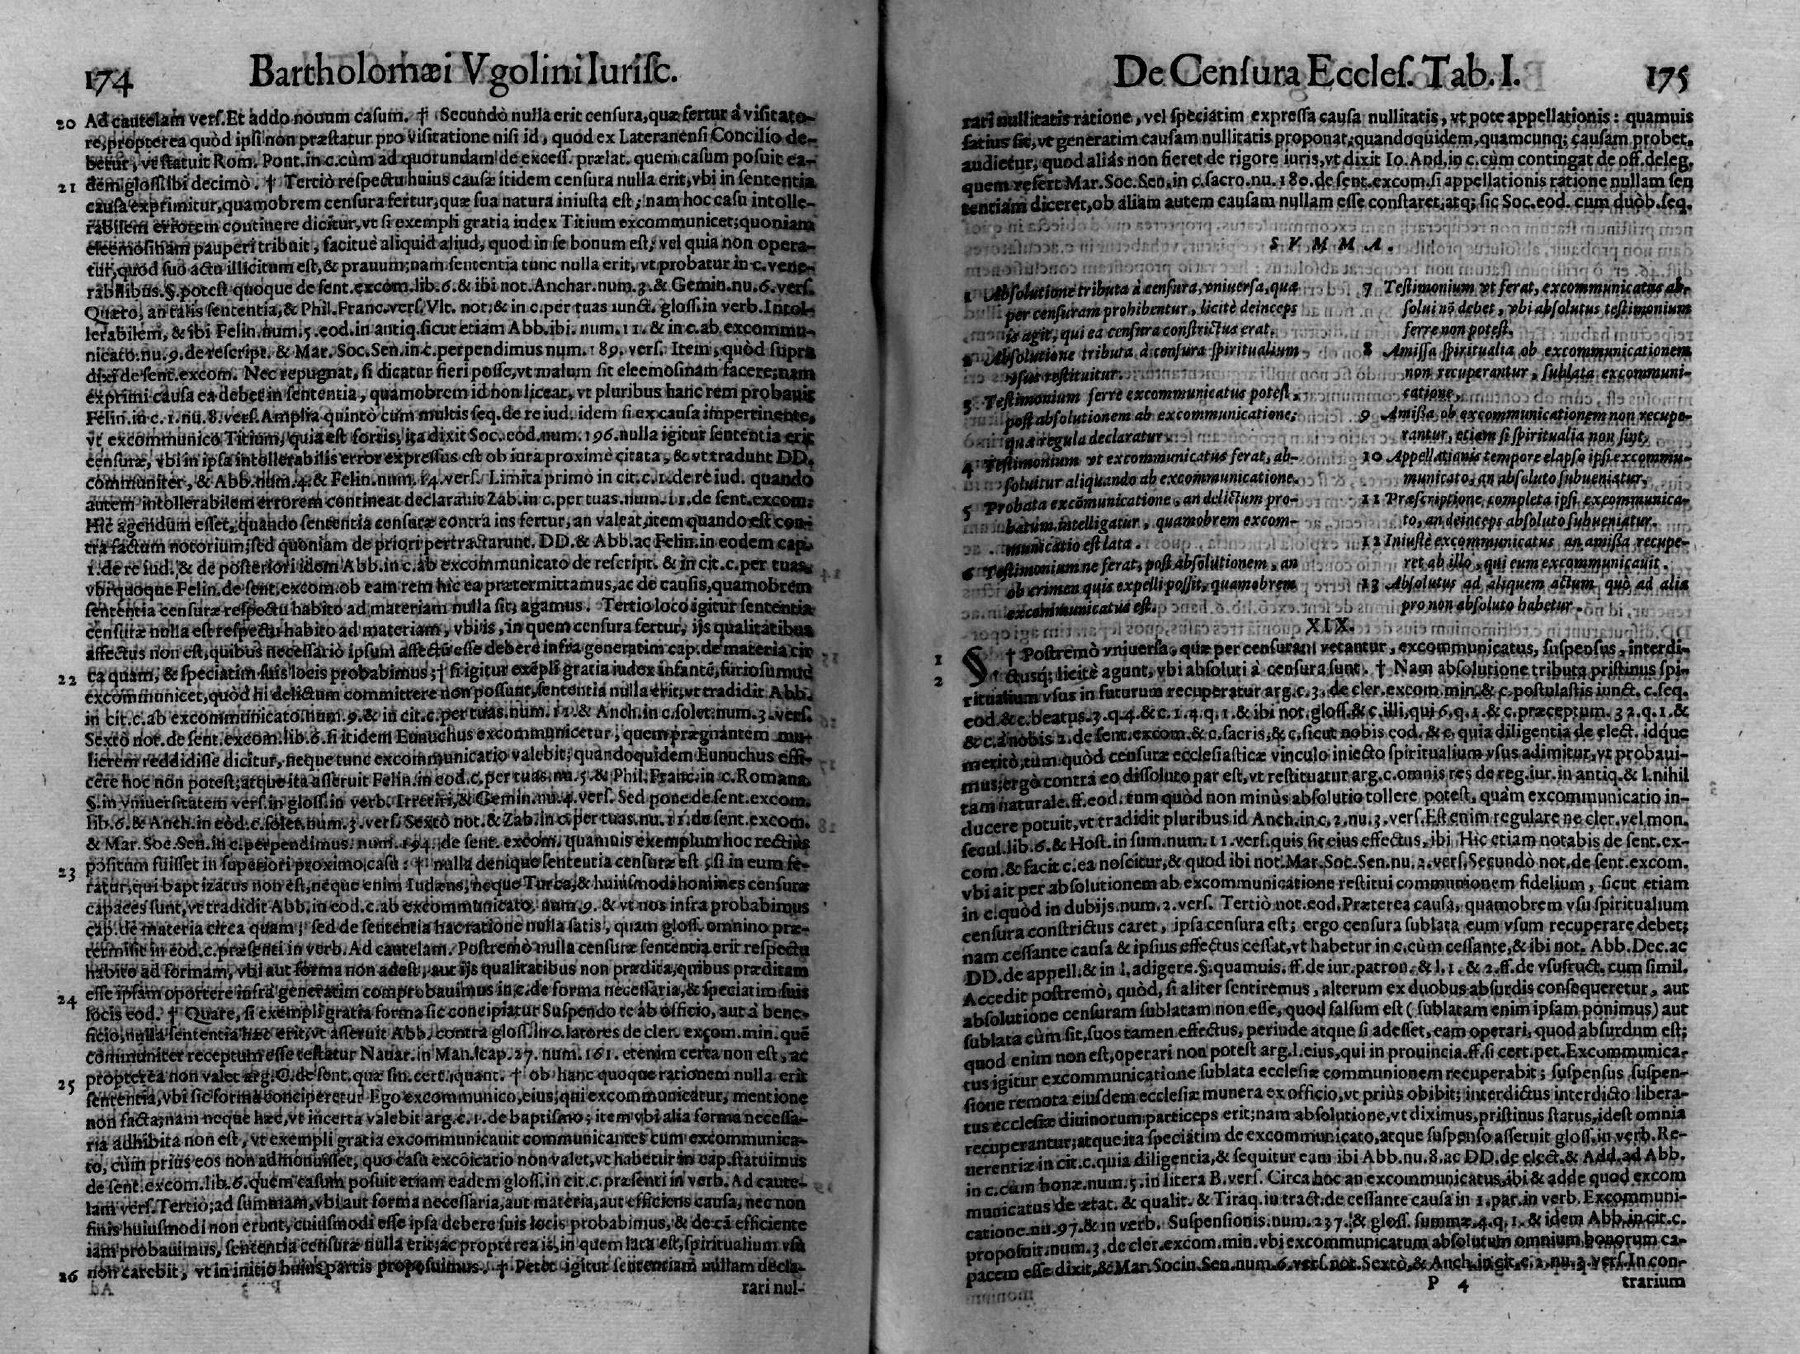 174 Bartholomæi Vgolini Iurisc.
20 Ad cautelam vers. Et addo nouum casum. † Secundò nulla erit censura, quæ fertur à visitato-
re, propterea quòd ipsi non præstatur pro visitatione nisi id, quod ex Lateranensi Concilio de-
betur, vt statuit Rom. Pont. in c. cùm ad quorundam de excess. prælat. quem casum posuit ea-
21 dem gloss. ibi decimò. † Tertiò respectu huius causæ itidem censura nulla erit, vbi in sententia
causa exprimitur, quamobrem censura fertur, quæ sua natura iniusta est; nam hoc casu intolle-
rabilem errorem continere dicitur, vt si exempli gratia iudex Titium excommunicet; quoniam
eleemosinam pauperi tribuit, facitue aliquid aliud, quod in se bonum est; vel quia non opera-
tur, quod suo actu illicitum est, & prauum; nam sententia tunc nulla erit, vt probatur in c. vene-
rabilibus. §. potest quoque de sent. excom. lib. 6. & ibi not. Anchar. num. 3. & Gemin. nu. 6. vers.
Quæro, an talis sententia, & Phil. Franc. vers. Vlt. not. & in c. per tuas iunct. gloss. in verb. Intol-
lerabilem, & ibi Felin. num. 5. eod. in antiq. sicut etiam Abb. ibi. num. 11. & in c. ab excommu-
nicato. nu. 9. de rescript. & Mar. Soc. Sen. in c. perpendimus num. 189. vers. Item, quòd supra
dixi de sent. excom. Nec repugnat, si dicatur fieri posse, vt malum sit eleemosinam facere; nam
exprimi causa ea debet in sententia, quamobrem id non liceat, vt pluribus hanc rem probauit
Felin. in c. 1. nu. 8. vers. Amplia quintò cum multis seq. de re iud. idem si ex causa impertinente,
vt excommunico Titium, quia est fortis, ita dixit Soc. eod. num. 196. nulla igitur sententia erit
censuræ, vbi in ipsa intollerabilis error expressus est ob iura proximè citata, & vt tradunt DD.
communiter, & Abb. num. 4. & Felin. num. 14. vers. Limita primò in cit. c. 1. de re iud. quando
autem intollerabilem errorem contineat declarauit Zab. in c. per tuas. num. 11. de sent. excom.
Hic agendum esset, quando sententia censuræ contra ius fertur, an valeat, item quando est con-
tra factum notorium; sed quoniam de priori pertractarunt. DD. & Abb. ac Felin. in eodem cap.
1. de re iud. & de posteriori idem Abb. in c. ab excommunicato de rescript. & in cit. c. per tuas.
vbi quoque Felin. de sent. excom. ob eam rem hic ea prætermittamus, ac de causis, quamobrem
sententia censuræ respectu habito ad materiam nulla sit, agamus. Tertio loco igitur sententia
censuræ nulla est respectu habito ad materiam, vbi is, in quem censura fertur, ijs qualitatibus
affectus non est, quibus necessariò ipsum affectũ esse debere infra generatim cap. de materia cir
22 ca quam, & speciatim suis locis probabimus; † si igitur exẽpli gratia iudex infantẽ, furiosumue
excommunicet, quòd hi delictum committere non possunt, sententia nulla erit, vt tradidit Abb.
in cit. c. ab excommunicato. num. 9. & in cit. c. per tuas. num. 11. & Anch. in c. solet. num. 3. vers.
Sextò not. de sent. excom. lib. 6. si itidem Eunuchus excommunicetur, quem prægnantem mu-
lierem reddidisse dicitur, neque tunc excommunicatio valebit; quandoquidem Eunuchus effi-
cere hoc non potest; atque ita asseruit Felin. in eod. c. per tuas. nu. 5. & Phil. Franc. in c. Romana.
§. in vniuersitatem vers. in gloss. in verb. Irretiri, & Gemin. nu. 4. vers. Sed pone de sent. excom.
lib. 6. & Anch. in eod. c. solet. num. 3. vers. Sextò not. & Zab. in c. per tuas. nu. 11. de sent. excom.
& Mar. Soc. Sen. in c. perpendimus. num. 194. de sent. excom. quamuis exemplum hoc rectius
23 positum fuisset in superiori proximo casu: † nulla denique sententia censuræ est, si in eum fe-
ratur, qui baptizatus non est, neque enim Iudæus, neque Turca, & huiusmodi homines censuræ
capaces sunt, vt tradidit Abb. in eod. c. ab excommunicato. num. 9. & vt nos infra probabimus
cap. de materia circa quam; sed de sententia hac ratione nulla satis, quam gloss. omnino præ-
termisit in eod. c. præsenti in verb. Ad cautelam. Postremò nulla censuræ sententia erit respectu
habito ad formam, vbi aut forma non adest, aut ijs qualitatibus non prædita, quibus præditam
esse ipsam oportere infra generatim comprobauimus in c. de forma necessaria, & speciatim suis
24 locis eod. † Quare, si exempli gratia forma sic concipiatur Suspendo te ab officio, aut à bene-
ficio, nulla sententia hæc erit, vt asseruit Abb. contra gloss. in c. latores de cler. excom. min. quẽ
communiter receptum esse testatur Nauar. in Man. cap. 27. num. 161. etenim certa non est, ac
25 propterea non valet arg. §. de sent. quæ sin. cert. quant. † ob hanc quoque rationem nulla erit
sententia, vbi sic forma conciperetur Ego excommunico, eius, qui excommunicatur, mentione
non facta; nam neque hæc, vt incerta valebit arg. c. 1. de baptismo; item vbi alia forma necessa-
ria adhibita non est, vt exempli gratia excommunicauit communicantes cum excommunica-
to, cùm prius eos non admonuisset, quo casu excõicatio non valet, vt habetur in cap. statuimus
de sent. excom. lib. 6. quem casum posuit etiam eadem gloss. in cit. c. præsenti in verb. Ad caute-
lam vers. Tertiò; ad summam, vbi aut forma necessaria, aut materia, aut efficiens causa, nec non
finis huiusmodi non erunt, cuiusmodi esse ipsa debere suis locis probabimus, & de cã efficiente
iam probauimus, sententia censuræ nulla erit; ac propterea is, in quem lata est, spiritualium vsu
26 non carebit, vt in initio huius partis proposuimus. † Petet igitur sententiam nullam decla-
rari nul-
De Censura Eccles. Tab. I. 175
rari nullitatis ratione, vel speciatim expressa causa nullitatis, vt pote appellationis: quamuis
satius sit, vt generatim causam nullitatis proponat; quandoquidem, quamcunq; causam probet,
audietur, quod aliàs non fieret de rigore iuris, vt dixit Io. And. in c. cùm contingat de off. deleg.
quem refert Mar. Soc. Sen. in c. sacro. nu. 180. de sent. excom. si appellationis ratione nullam sen
tentiam diceret, ob aliam autem causam nullam esse constaret, atq; sic Soc. eod. cum duob. seq.
SVMMA.
1 Absolutione tributa à censura, vniuersa, quæ
per censuram prohibentur, licitè deinceps
is agit, qui ea censura constrictus erat.
2 Absolutione tributa à censura spiritualium
vsus restituitur.
3 Testimonium ferre excommunicatus potest,
post absolutionem ab excommunicatione;
quæ regula declaratur.
4 Testimonium vt excommunicatus ferat, ab-
soluitur aliquando ab excommunicatione.
5 Probata excõmunicatione, an delictum pro-
batum intelligatur, quamobrem excom-
municatio est lata.
6 Testimoniumne ferat, post absolutionem, an
ob crimen quis expelli possit, quamobrem
excommunicatus est.
7 Testimonium vt ferat, excommunicatus ab-
solui nõ debet, vbi absolutus testimonium
ferre non potest.
8 Amissa spiritualia ob excommunicationem
non recuperantur, sublata excommuni-
catione.
9 Amissa ob excommunicationem non recupe-
rantur, etiam si spiritualia non sint.
10 Appellationis tempore elapso ipsi excommu-
nicato, an absoluto subueniatur.
11 Præscriptione completa ipsi excommunica-
to, an deinceps absoluto subueniatur.
12 Iniustè excommunicatus an amissa recupe-
ret ab illo, qui eum excommunicauit.
13 Absolutus ad aliquem actum, quò ad alia
pro non absoluto habetur.
XIX.
1 § † Postremò vniuersa, quæ per censuram vetantur, excommunicatus, suspensus, interdi-
2 ctusq; licitè agunt, vbi absoluti à censura sunt. † Nam absolutione tributa pristinus spi-
ritualium vsus in futurum recuperatur arg. c. 3. de cler. excom. min. & c. postulastis iunct. c. seq.
eod. & c. beatus. 3. q. 4. & c. 1. 4. q. 1. & ibi not. gloss. & c. illi, qui 6. q. 1. & c. præceptum. 32. q. 1. &
& c. à nobis 2. de sent. excom. & c. sacris, & c. sicut nobis eod. & c. quia diligentia de elect. idque
meritò, tùm quòd censuræ ecclesiasticæ vinculo iniecto spiritualium vsus adimitur, vt probaui-
mus; ergo contra eo dissoluto par est, vt restituatur arg. c. omnis res de reg. iur. in antiq. & l. nihil
tam naturale. ff. eod. tum quòd non minùs absolutio tollere potest, quàm excommunicatio in-
ducere potuit, vt tradidit pluribus id Anch. in c. 2. nu. 3. vers. Est enim regulare ne cler. vel mon.
secul. lib. 6. & Host. in sum. num. 11. vers. quis sit eius effectus, ibi Hic etiam notabis de sent. ex-
com. & facit c. ea noscitur, & quod ibi not. Mar. Soc. Sen. nu. 2. vers. Secundò not. de sent. excom.
vbi ait per absolutionem ab excommunicatione restitui communionem fidelium, sicut etiam
in c. quòd in dubijs. num. 2. vers. Tertiò not. eod. Præterea causa, quamobrem vsu spiritualium
censura constrictus caret, ipsa censura est; ergo censura sublata eum vsum recuperare debet;
nam cessante causa & ipsius effectus cessat, vt habetur in c. cùm cessante, & ibi not. Abb. Dec. ac
DD. de appell. & in l. adigere. §. quamuis. ff. de iur. patron. & l. 1. & 2. ff. de vsufruct. cum simil.
Accedit postremò, quòd, si aliter sentiremus, alterum ex duobus absurdis consequeretur, aut
absolutione censuram sublatam non esse, quod falsum est (sublatam enim ipsam ponimus) aut
sublata cùm sit, suos tamen effectus, perinde atque si adesset, eam operari, quod absurdum est;
quod enim non est, operari non potest arg. l. eius, qui in prouincia. ff. si cert. pet. Excommunica-
tus igitur excommunicatione sublata ecclesiæ communionem recuperabit; suspensus suspen-
sione remota eiusdem ecclesiæ munera ex officio, vt priùs obibit; interdictus interdicto libera-
tus ecclesiæ diuinorum particeps erit; nam absolutione, vt diximus, pristinus status, idest omnia
recuperantur; atque ita speciatim de excommunicato, atque suspenso asseruit gloss. in verb. Re-
uerentiæ in cit. c. quia diligentia, & sequitur eam ibi Abb. nu. 8. ac DD. de elect. & Add. ad Abb.
in c. cùm bonæ. num. 5. in litera B. vers. Circa hoc an excommunicatus, ibi & adde quod excom
municatus de ætat. & qualit. & Tiraq. in tract. de cessante causa in 1. par. in verb. Excommuni-
catione. nu. 97. & in verb. Suspensionis. num. 237. & gloss. summæ. 4. q. 1. & idem Abb. in cit. c.
proposuit. num. 3. de cler. excom. min. vbi excommunicatum absolutum omnium bonorum ca-
pacem esse dixit, & Mar. Socin. Sen. num. 6. vers. not. Sextò, & Anch. in cit. c. 2. nu. 3. vers. In con-
P 4 trarium